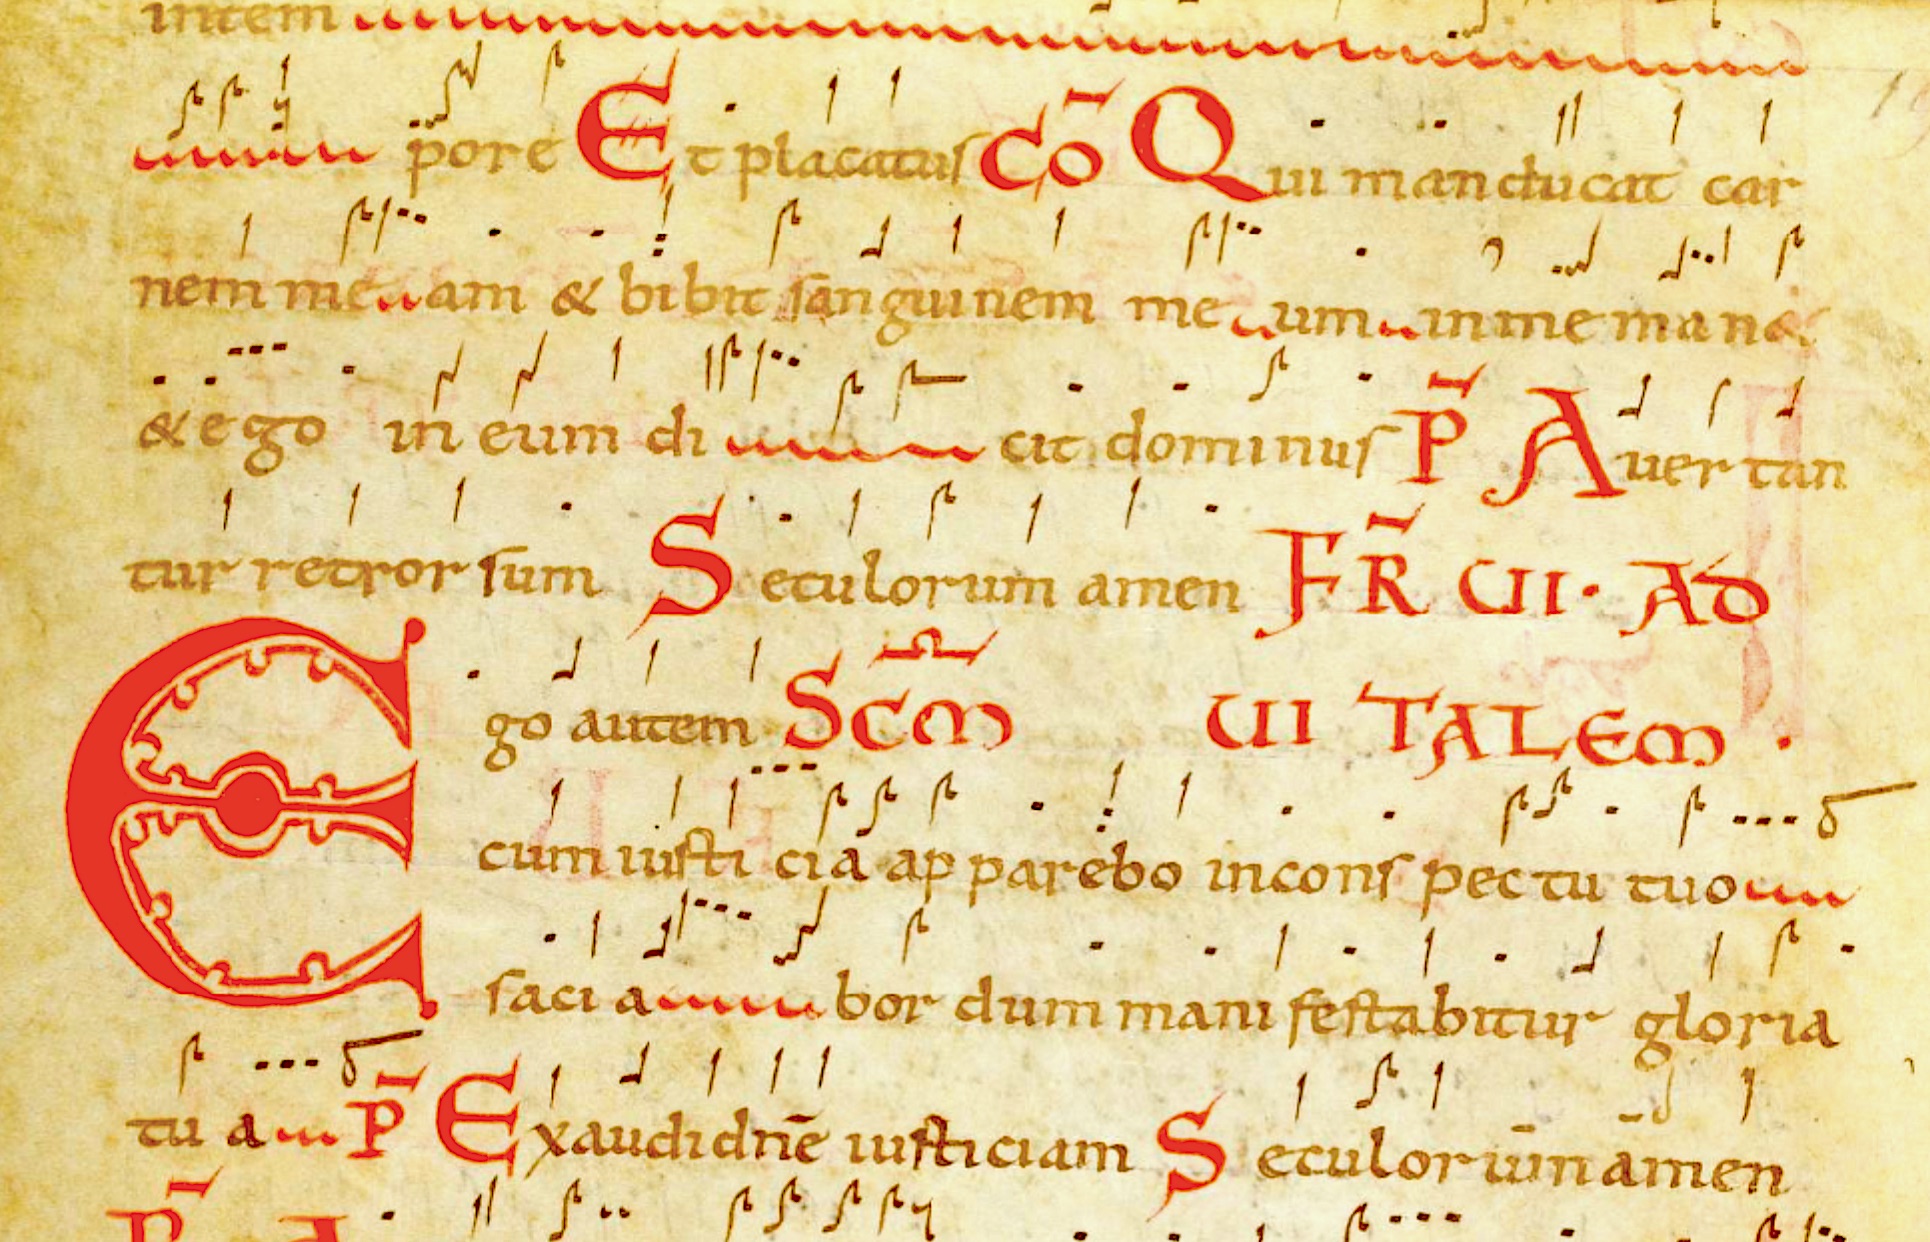 intem
pore Et placatus Cō Qui manducat car
nem me am & bibit sanguinem me um in me man&
& ego in eum di cit dominus P̄ Auertan
tur retrorsum Seculorum amen FR̄ VI· AD
Ego autem SCM̄ VITALEM ·
cum iusticia apparebo in conspectu tuo
saci a bor dum manifestabitur gloria
tu a P̄ Exaudi dn̄e iusticiam Seculorum amen